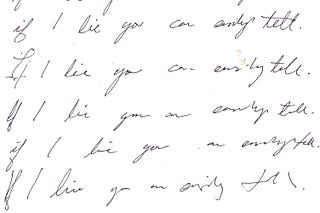 if I lie you can easily tell.
If I lie you can easily tell.
If I lie you an easily tell.
if I lie you an easily tell.
If I lie yo an easily tell.